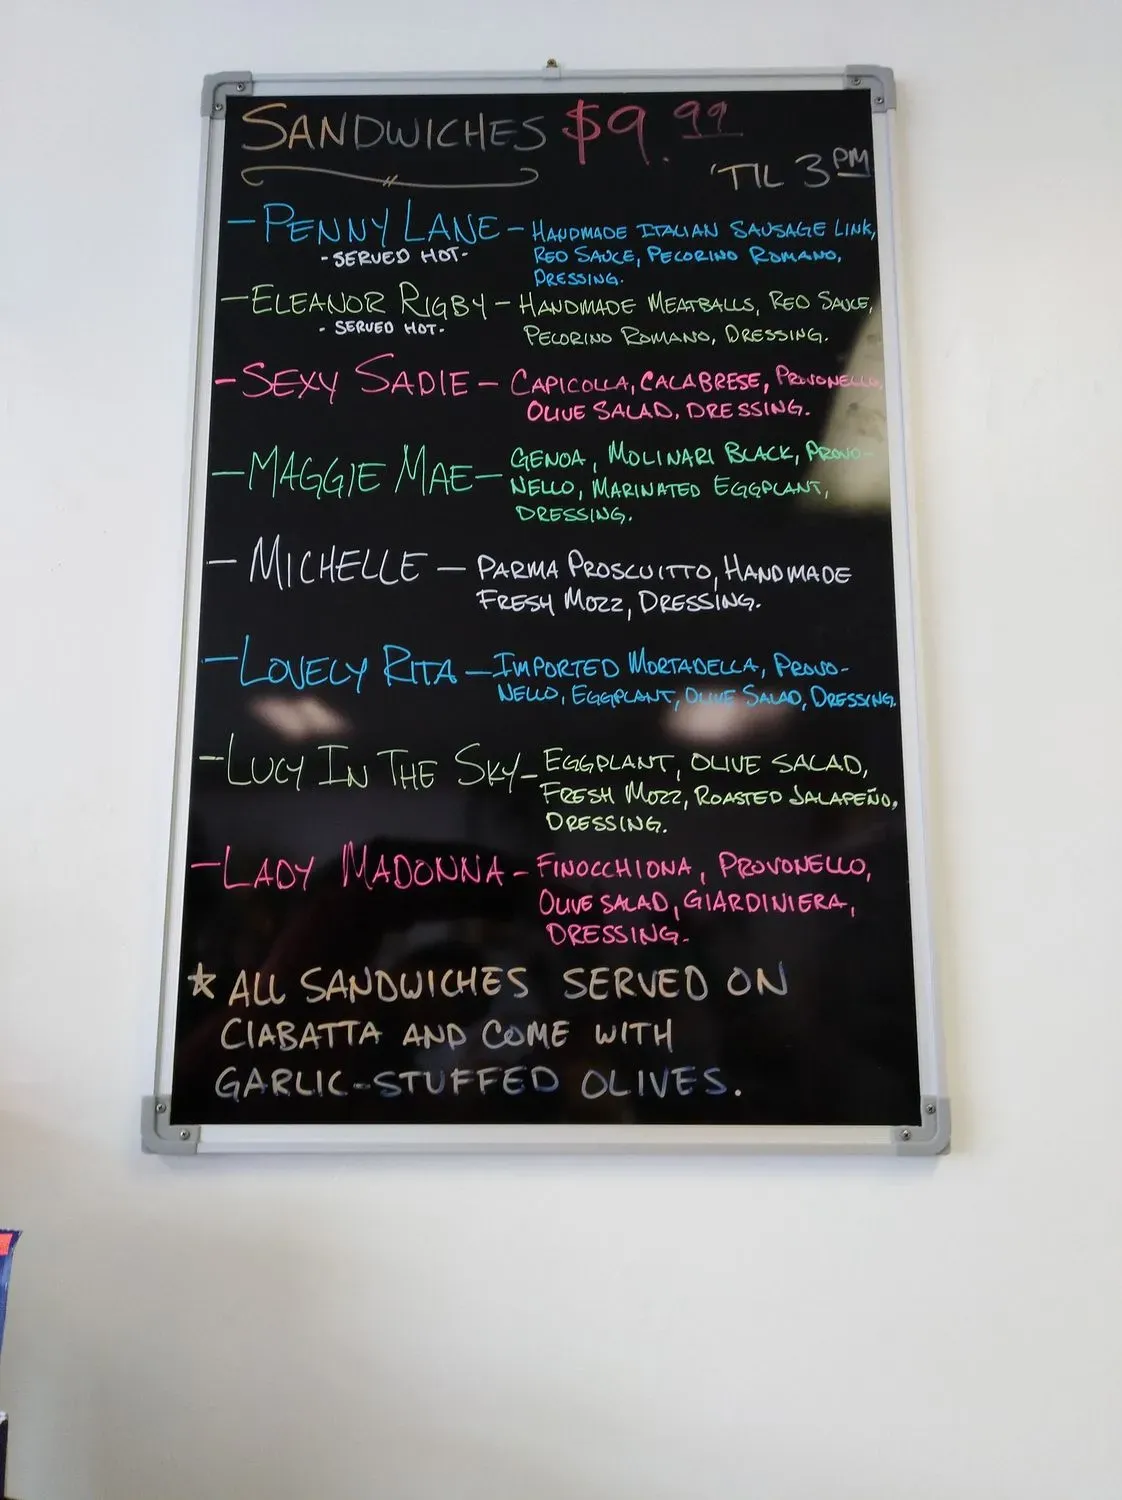 SANDWICHES $9.99
'TIL 3PM
- PENNY LANE - HANDMADE ITALIAN SAUSAGE LINK,
- SERVED HOT - RED SAUCE, PECORINO ROMANO,
DRESSING.
- ELEANOR RIGBY - HANDMADE MEATBALLS, RED SAUCE,
- SERVED HOT - PECORINO ROMANO, DRESSING.
- SEXY SADIE - CAPICOLLA, CALABRESE, PROVONELLO,
OLIVE SALAD, DRESSING.
- MAGGIE MAE - GENOA, MOLINARI BLACK, PROVO-
NELLO, MARINATED EGGPLANT,
DRESSING.
- MICHELLE - PARMA PROSCUITTO, HANDMADE
FRESH MOZZ, DRESSING.
- LOVELY RITA - IMPORTED MORTADELLA, PROVO-
NELLO, EGGPLANT, OLIVE SALAD, DRESSING.
- LUCY IN THE SKY - EGGPLANT, OLIVE SALAD,
FRESH MOZZ, ROASTED JALAPEÑO,
DRESSING.
- LADY MADONNA - FINOCCHIONA, PROVONELLO,
OLIVE SALAD, GIARDINIERA,
DRESSING.
☆ ALL SANDWICHES SERVED ON
CIABATTA AND COME WITH
GARLIC-STUFFED OLIVES.